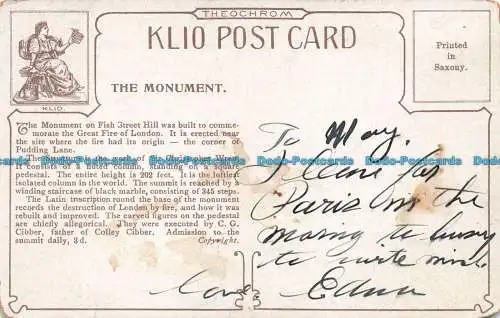 THEOCHROM
KLIO POST CARD
KLIO.
Printed
in
Saxony.
THE MONUMENT.
The Monument on Fish Street Hill was built to comme-
morate the Great Fire of London. It is erected near
the site where the fire had its origin — the corner of
Pudding Lane.
The Structure is the work of Sir Christopher Wren.
It consists of a fluted column, standing on a square
pedestal. The entire height is 202 feet. It is the loftiest
isolated column in the world. The summit is reached by a
winding staircase of black marble, consisting of 345 steps.
The Latin inscription round the base of the monument
records the destruction of London by fire, and how it was
rebuilt and improved. The carved figures on the pedestal
are chiefly allegorical. They were executed by C. G.
Cibber, father of Colley Cibber. Admission to the
summit daily, 3 d.
Copyright.
To May.
Paris on the
to
to write
Edna
www.delcampe.net
Postcard-Finder